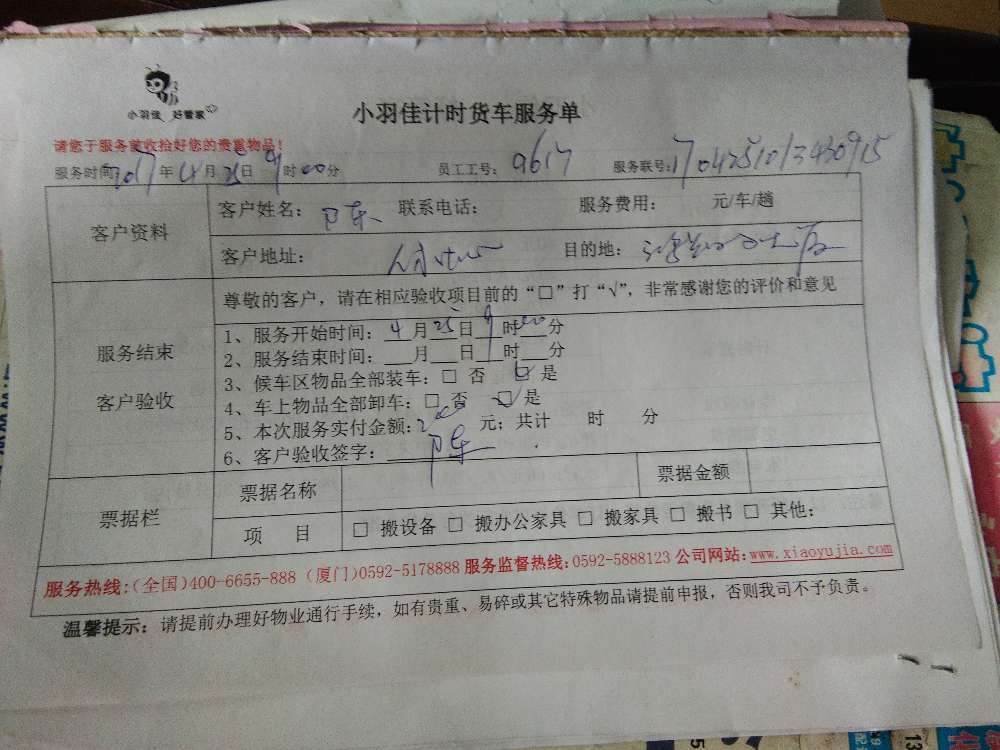 小羽佳 好管家
小羽佳计时货车服务单
请您于服务前收拾好您的贵重物品！
服务时间 2017年4月25日9时00分 员工工号：9617 服务联号：
客户资料
客户姓名：陈 联系电话： 服务费用： 元/车/趟
客户地址： 目的地：
服务结束
客户验收
尊敬的客户，请在相应验收项目前的“□”打“√”，非常感谢您的评价和意见
1、服务开始时间：4月25日9时00分
2、服务结束时间：___月___日___时___分
3、候车区物品全部装车：□ 否 ☑ 是
4、车上物品全部卸车：□ 否 ☑ 是
5、本次服务实付金额：200 元；共计 时 分
6、客户验收签字：陈
票据栏
票据名称 票据金额
项 目 □ 搬设备 □ 搬办公家具 □ 搬家具 □ 搬书 □ 其他：
服务热线：(全国)400-6655-888 (厦门)0592-5178888 服务监督热线：0592-5888123 公司网站：www.xiaoyujia.com
温馨提示：请提前办理好物业通行手续，如有贵重、易碎或其它特殊物品请提前申报，否则我司不予负责。